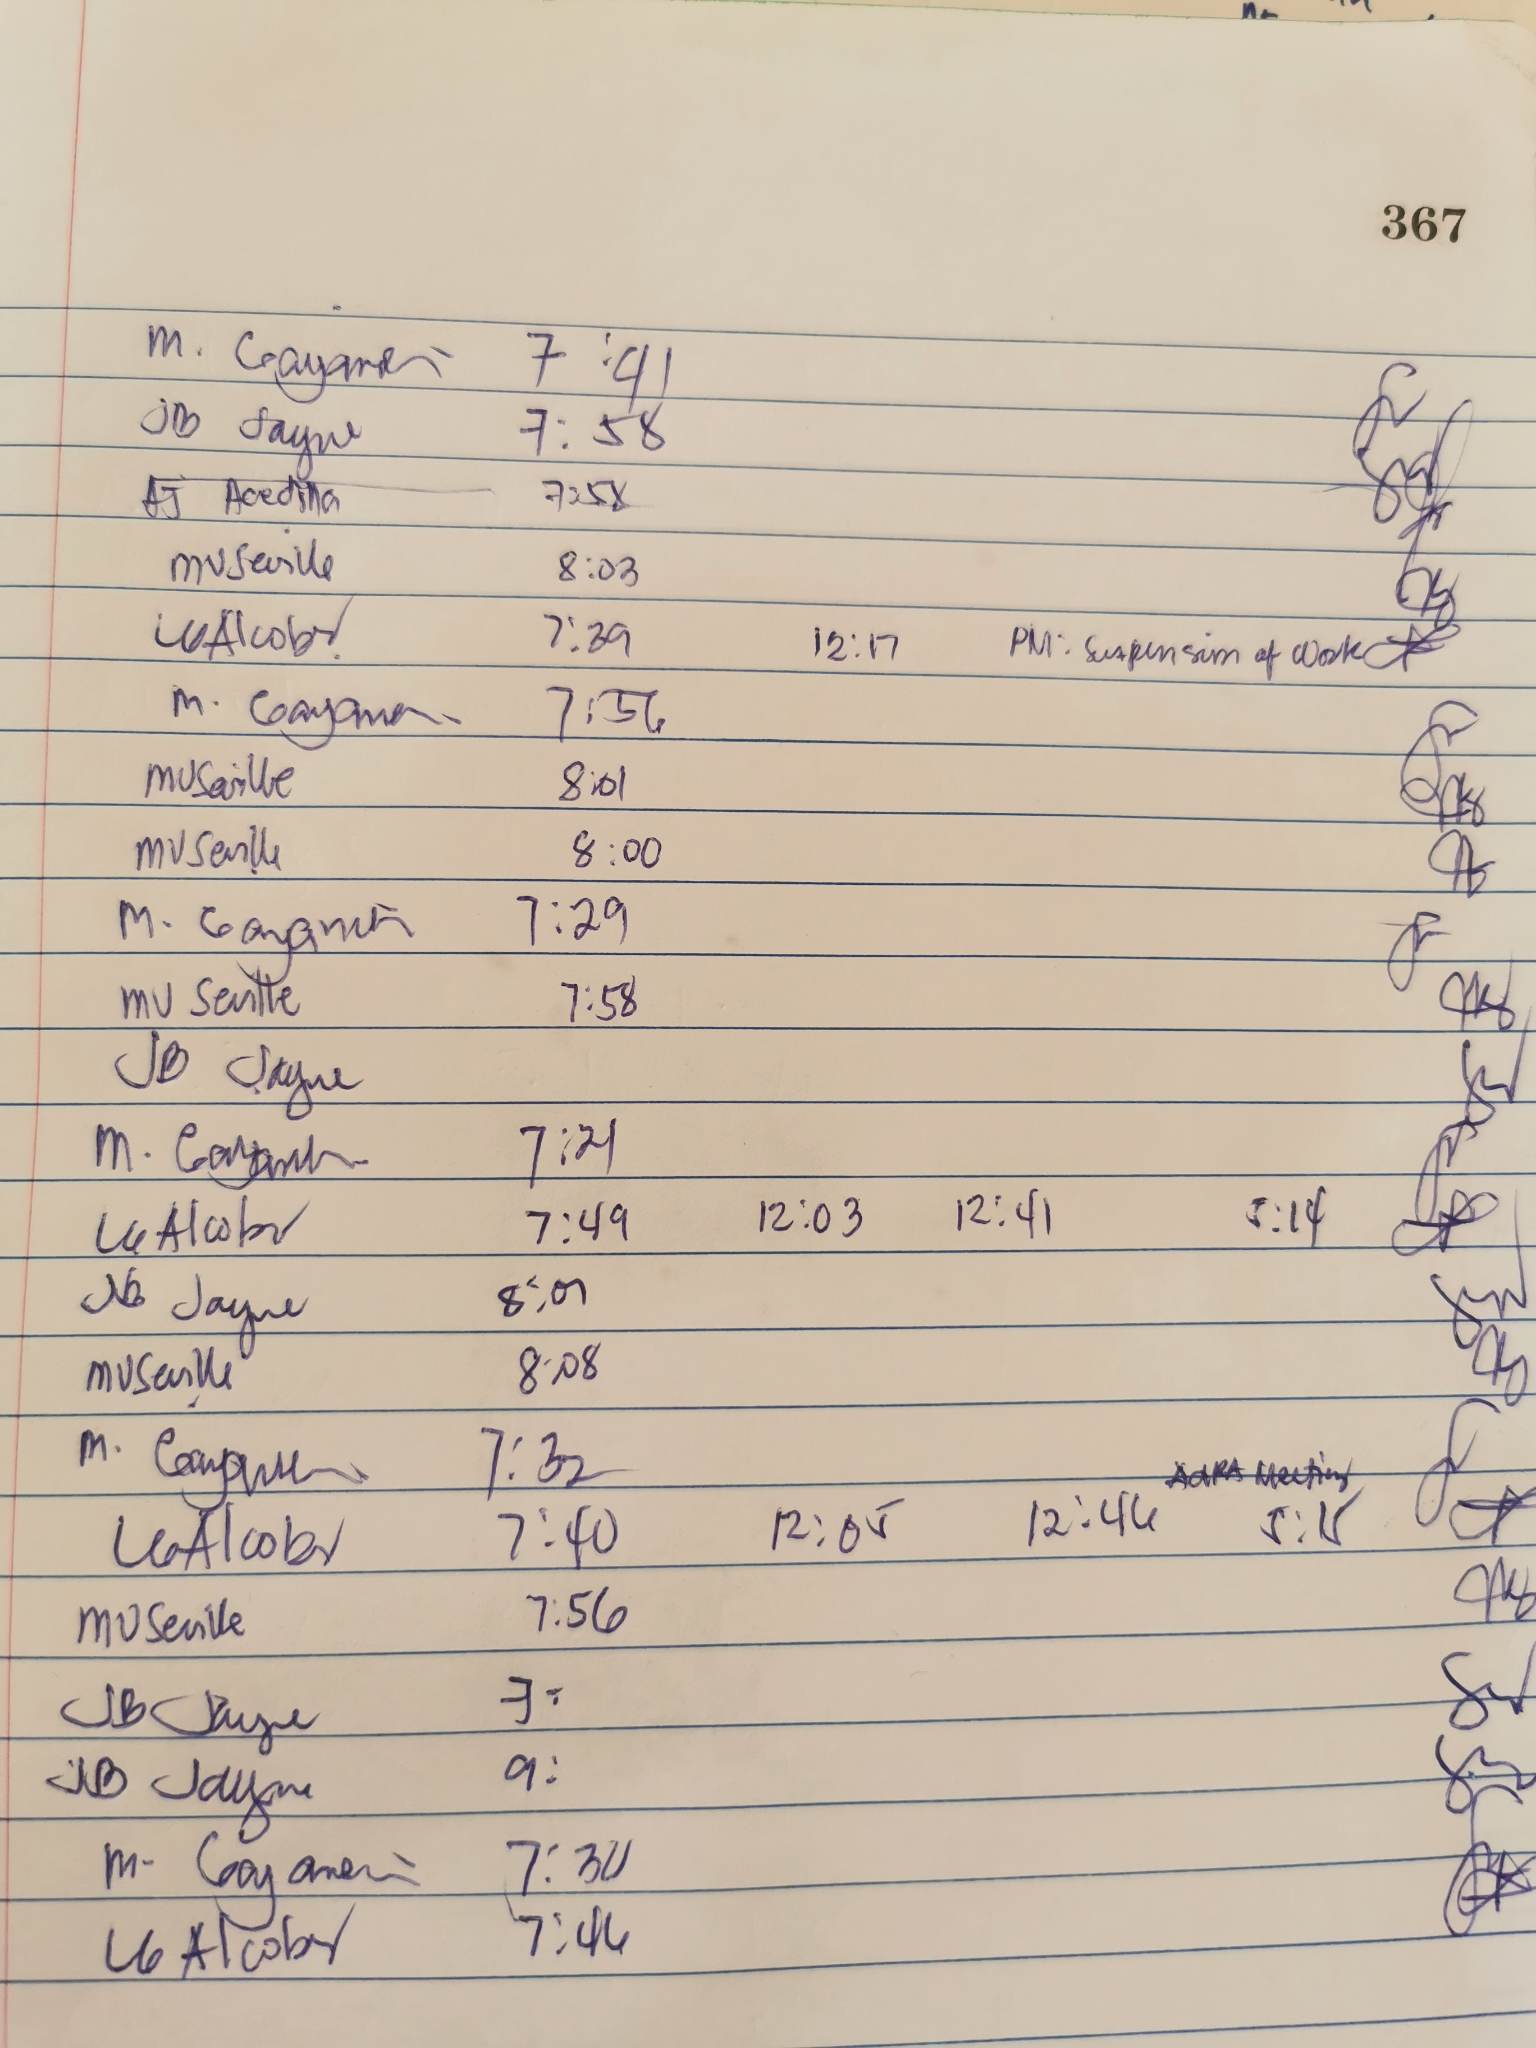 367
M. Gayaneri 7:41
JB Jayne 7:58
AJ Acedilla 7:58
MV Seville 8:03
LG Alcober 7:39 12:17 PM: Suspension of Work
M. 7:56
MV Seville 8:01
MV Seville 8:00
M. 7:29
MV Seville 7:58
JB Jayne
M. 7:21
LG Alcober 7:49 12:03 12:41 5:14
JB Jayne 8:01
MV Seville 8:08
M. 7:32
Meeting
LG Alcober 7:40 12:05 12:46 5:15
MV Seville 7:56
JB Jayne 7:
JB Jayne 9:
M. Gayaneri 7:30
LG Alcober 7:46